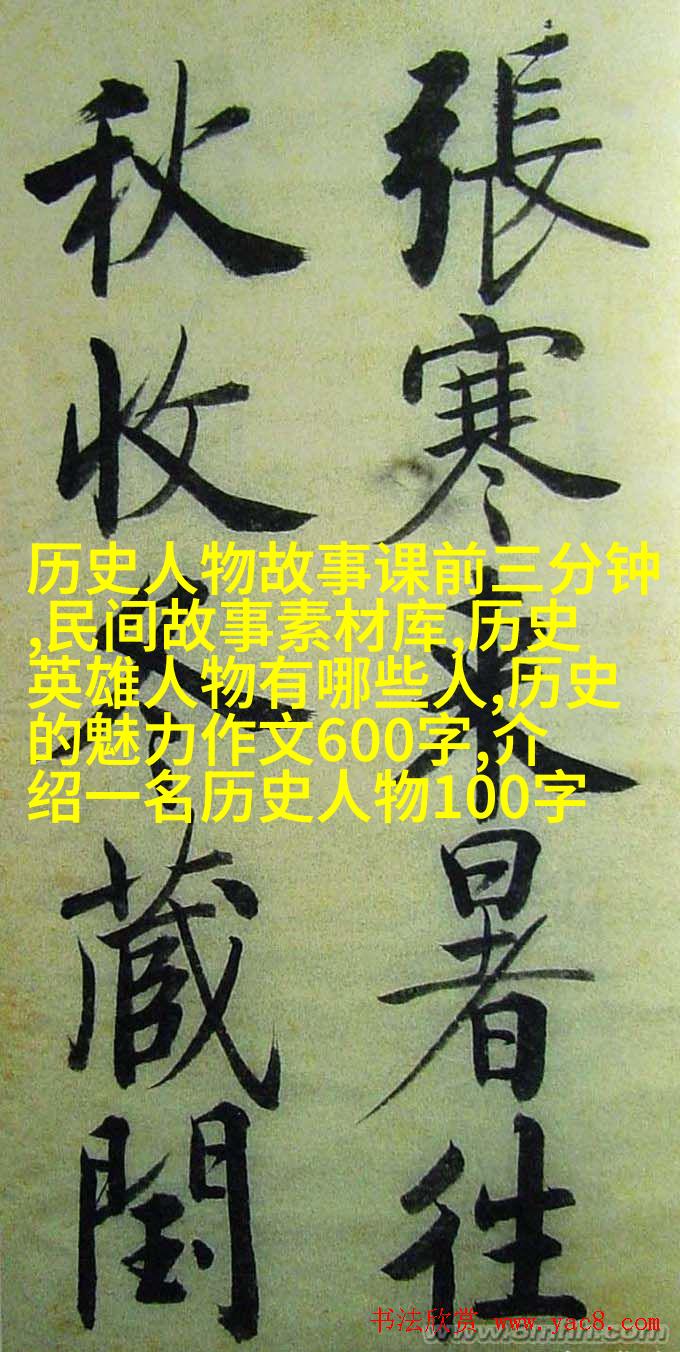 張寒来暑往
秋收冬蔵閏
历史人物故事课前三分钟
,民间故事素材库,历史
英雄人物有哪些人,历史
的魅力作文600字,介
绍一名历史人物100字
书法欣赏 www.yac8.com